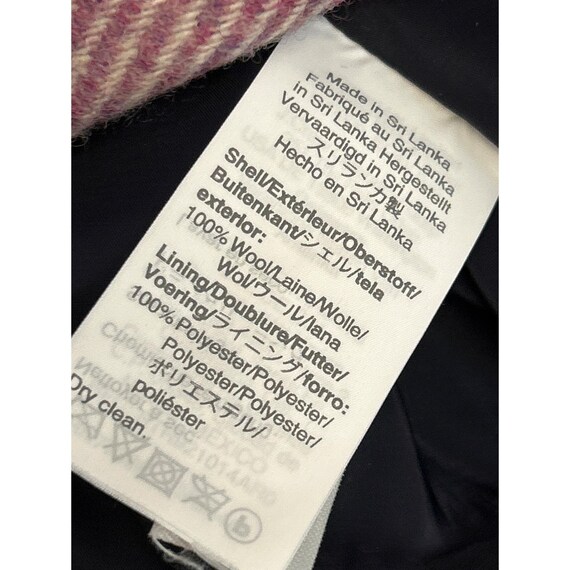 Made in Sri Lanka
Fabriqué au Sri Lanka
in Sri Lanka Hergestellt
Vervaardigd in Sri Lanka
スリランカ製
Hecho en Sri Lanka
Shell/Extérieur/Oberstoff/
Buitenkant/シェル/tela
exterior:
100% Wool/Laine/Wolle/
Wol/ウール/lana
Lining/Doublure/Futter/
Voering/ライニング/forro:
100% Polyester/Polyester/
Polyester/Polyester/
ポリエステル/
poliéster
Dry clean.
P